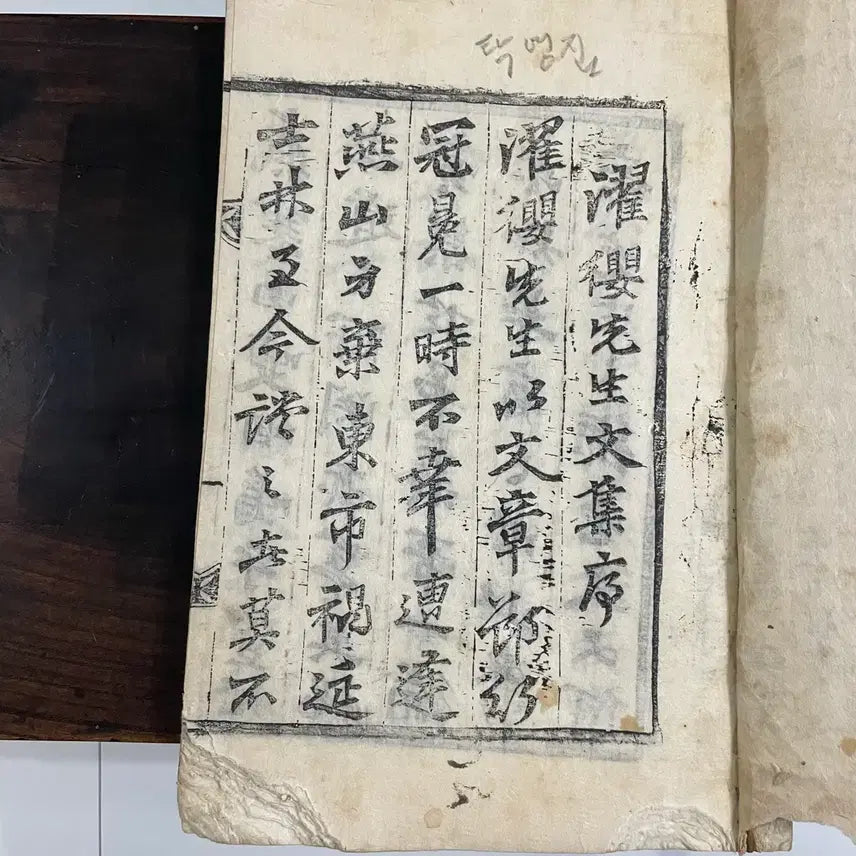 탁영집
濯纓先生文集序
濯纓先生以文章節行
冠冕一時不幸遭逢
燕山身棄東市禍延
士林至今談之者莫不